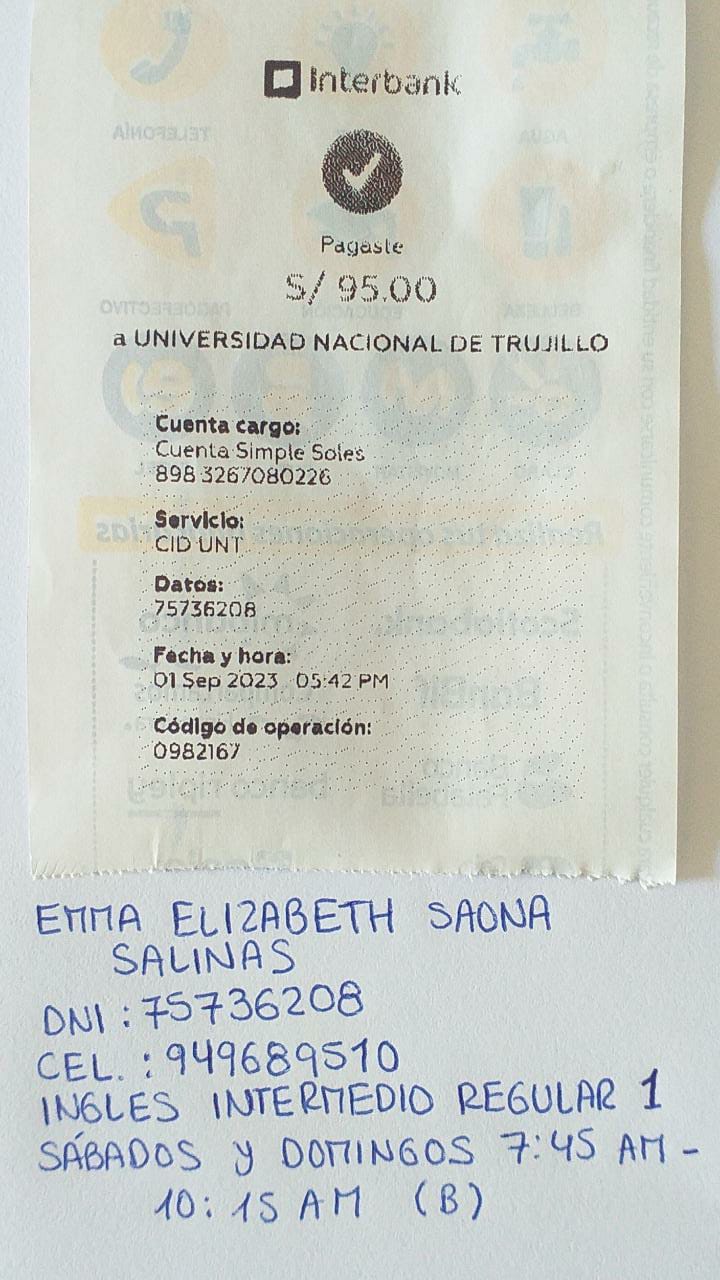 Interbank
Pagaste
S/ 95.00
a UNIVERSIDAD NACIONAL DE TRUJILLO
Cuenta cargo:
Cuenta Simple Soles
898 3267080226
Servicio:
CID UNT
Datos:
75736208
Fecha y hora:
01 Sep 2023 05:42 PM
Código de operación:
0982167
EMMA ELIZABETH SAONA
SALINAS
DNI : 75736208
CEL. : 949689510
INGLES INTERMEDIO REGULAR 1
SÁBADOS y DOMINGOS 7:45 AM -
10:15 AM (B)